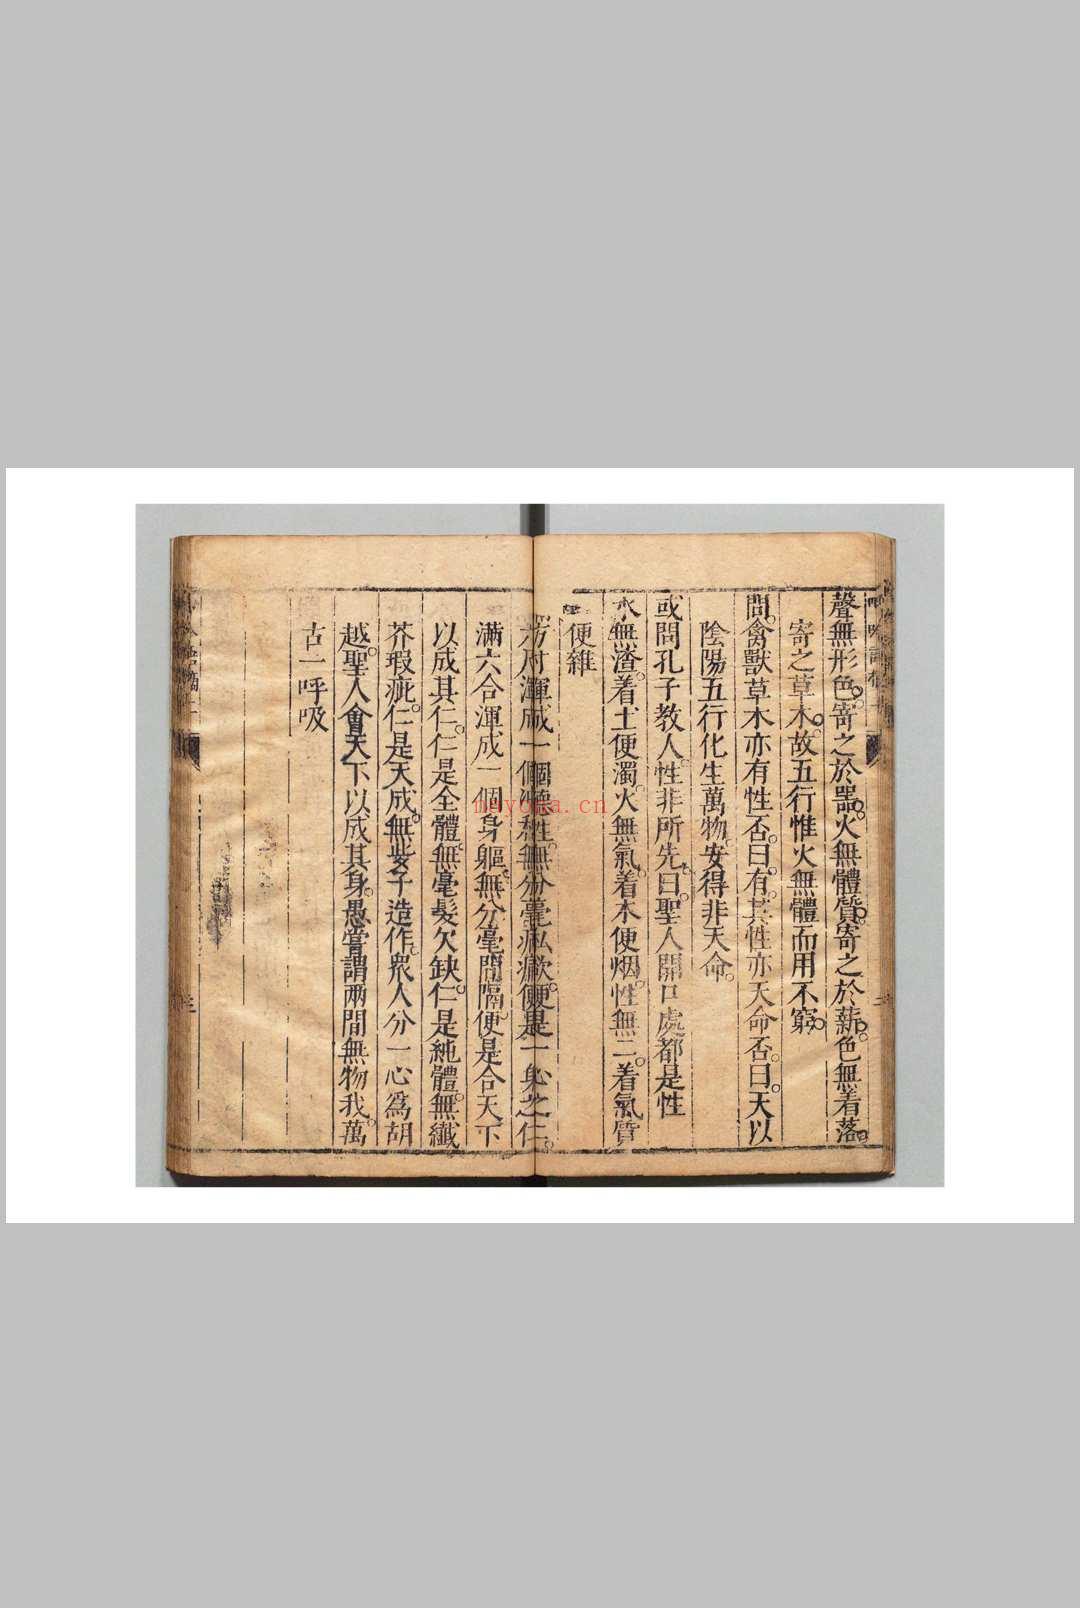 聲無形色寄之於器火無體質寄之於薪色無着落
寄之草木故五行惟火無體而用不窮
問禽獸草木亦有性否曰有其性亦天命否曰天以
陰陽五行化生萬物安得非天命
或問孔子教人性非所先曰聖人開口處都是性
水無渣着土便濁火無氣着木便烟性無二着氣質
便雜
渾成一個無分毫私便是一身之仁
滿六合渾成一個身軀無分毫間隔便是合天下
以成其仁仁是全體無毫髮欠缺仁是純體無纖
芥瑕疵仁是天成無些子造作眾人分一心為胡
越聖人會天下以成其身愚嘗謂兩間無物我萬
古一呼吸
nayona.cn